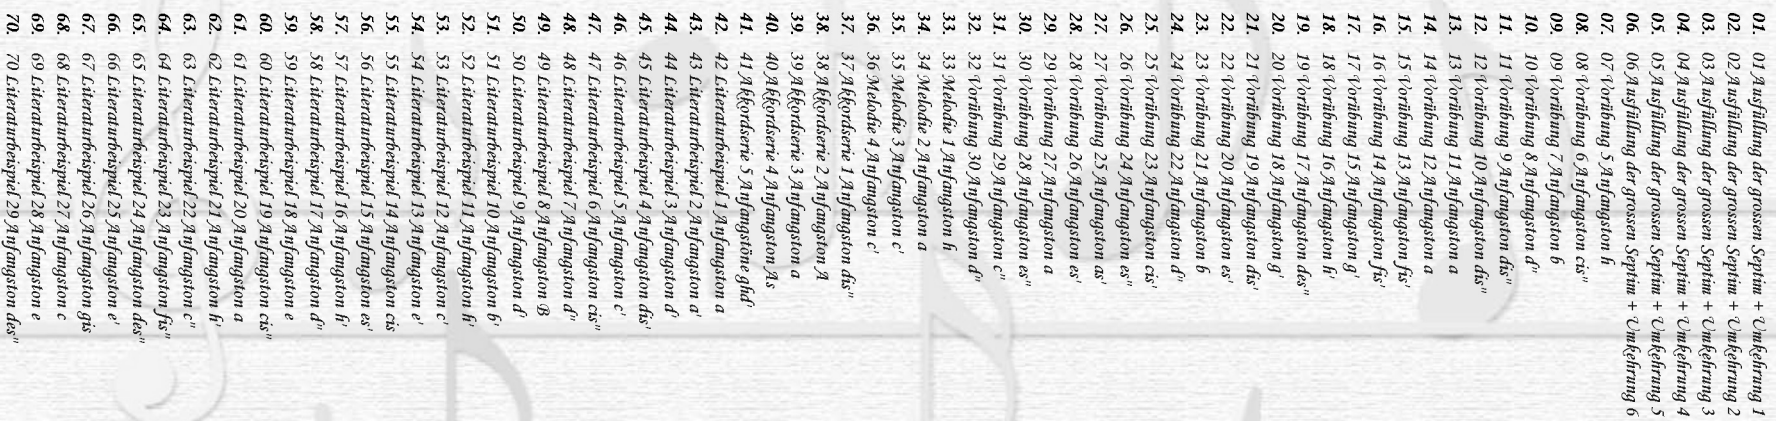 01. 01 Ausfüllung der grossen Septim + Umkehrung 1
02. 02 Ausfüllung der grossen Septim + Umkehrung 2
03. 03 Ausfüllung der grossen Septim + Umkehrung 3
04. 04 Ausfüllung der grossen Septim + Umkehrung 4
05. 05 Ausfüllung der grossen Septim + Umkehrung 5
06. 06 Ausfüllung der grossen Septim + Umkehrung 6
07. 07 Vorübung 5 Anfangston h
08. 08 Vorübung 6 Anfangston cis"
09. 09 Vorübung 7 Anfangston b
10. 10 Vorübung 8 Anfangston d"
11. 11 Vorübung 9 Anfangston dis"
12. 12 Vorübung 10 Anfangston dis"
13. 13 Vorübung 11 Anfangston a
14. 14 Vorübung 12 Anfangston a
15. 15 Vorübung 13 Anfangston fis'
16. 16 Vorübung 14 Anfangston fis'
17. 17 Vorübung 15 Anfangston g'
18. 18 Vorübung 16 Anfangston h'
19. 19 Vorübung 17 Anfangston des"
20. 20 Vorübung 18 Anfangston g'
21. 21 Vorübung 19 Anfangston dis'
22. 22 Vorübung 20 Anfangston es'
23. 23 Vorübung 21 Anfangston b
24. 24 Vorübung 22 Anfangston d"
25. 25 Vorübung 23 Anfangston cis'
26. 26 Vorübung 24 Anfangston es"
27. 27 Vorübung 25 Anfangston as'
28. 28 Vorübung 26 Anfangston es'
29. 29 Vorübung 27 Anfangston a
30. 30 Vorübung 28 Anfangston es"
31. 31 Vorübung 29 Anfangston c"
32. 32 Vorübung 30 Anfangston d"
33. 33 Melodie 1 Anfangston h
34. 34 Melodie 2 Anfangston a
35. 35 Melodie 3 Anfangston c'
36. 36 Melodie 4 Anfangston c'
37. 37 Akkordserie 1 Anfangston dis"
38. 38 Akkordserie 2 Anfangston A
39. 39 Akkordserie 3 Anfangston a
40. 40 Akkordserie 4 Anfangston As
41. 41 Akkordserie 5 Anfangstöne ghd'
42. 42 Literaturbeispiel 1 Anfangston a
43. 43 Literaturbeispiel 2 Anfangston a'
44. 44 Literaturbeispiel 3 Anfangston d'
45. 45 Literaturbeispiel 4 Anfangston dis'
46. 46 Literaturbeispiel 5 Anfangston c'
47. 47 Literaturbeispiel 6 Anfangston cis"
48. 48 Literaturbeispiel 7 Anfangston d"
49. 49 Literaturbeispiel 8 Anfangston B
50. 50 Literaturbeispiel 9 Anfangston d'
51. 51 Literaturbeispiel 10 Anfangston b'
52. 52 Literaturbeispiel 11 Anfangston h'
53. 53 Literaturbeispiel 12 Anfangston c'
54. 54 Literaturbeispiel 13 Anfangston e'
55. 55 Literaturbeispiel 14 Anfangston cis
56. 56 Literaturbeispiel 15 Anfangston es'
57. 57 Literaturbeispiel 16 Anfangston h'
58. 58 Literaturbeispiel 17 Anfangston d"
59. 59 Literaturbeispiel 18 Anfangston e
60. 60 Literaturbeispiel 19 Anfangston cis"
61. 61 Literaturbeispiel 20 Anfangston a
62. 62 Literaturbeispiel 21 Anfangston h'
63. 63 Literaturbeispiel 22 Anfangston c"
64. 64 Literaturbeispiel 23 Anfangston fis"
65. 65 Literaturbeispiel 24 Anfangston des"
66. 66 Literaturbeispiel 25 Anfangston e'
67. 67 Literaturbeispiel 26 Anfangston gis
68. 68 Literaturbeispiel 27 Anfangston c
69. 69 Literaturbeispiel 28 Anfangston e
70. 70 Literaturbeispiel 29 Anfangston des"